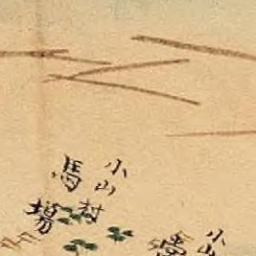 小山村
馬場
小山